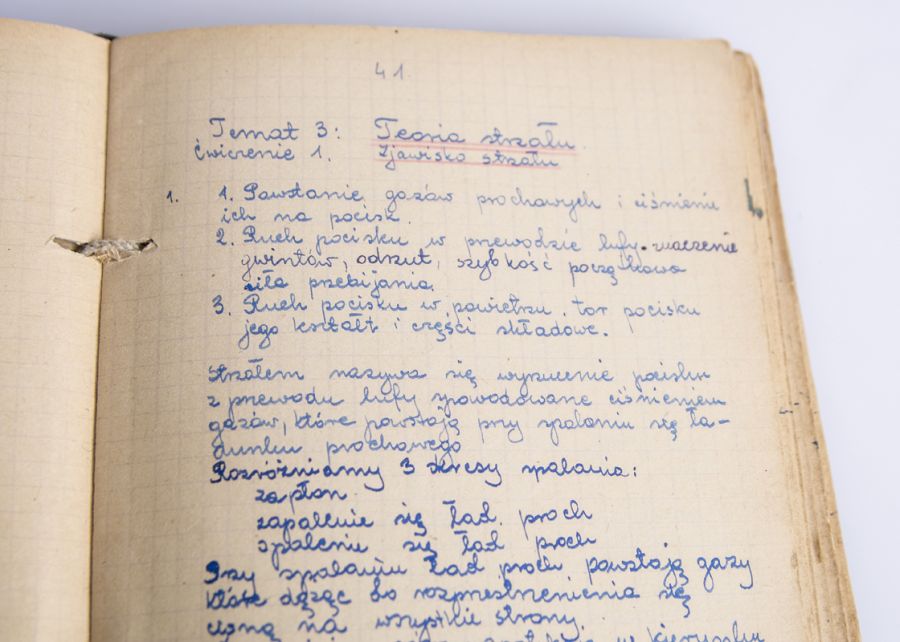 41
Temat 3: Teoria strzału.
Ćwiczenie 1. Zjawisko strzału
1. 1. Powstanie gazów prochowych i ciśnienie
ich na pocisk.
2. Ruch pocisku w przewodzie lufy. znaczenie
gwintów, odrzut, szybkość początkowa
siła przebijania.
3. Ruch pocisku w powietrzu, tor pocisku
jego kształt i części składowe.
Strzałem nazywa się wyrzucenie pocisku
z przewodu lufy spowodowane ciśnieniem
gazów, które powstają przy spalaniu się ła-
dunku prochowego
Rozróżniamy 3 okresy spalania:
zapłon
zapalenie się ład. proch
spalenie się ład proch
Przy spalaniu ład proch powstają gazy
które dążąc do rozprzestrzenienia się
cisną na wszystkie strony.
kierunku